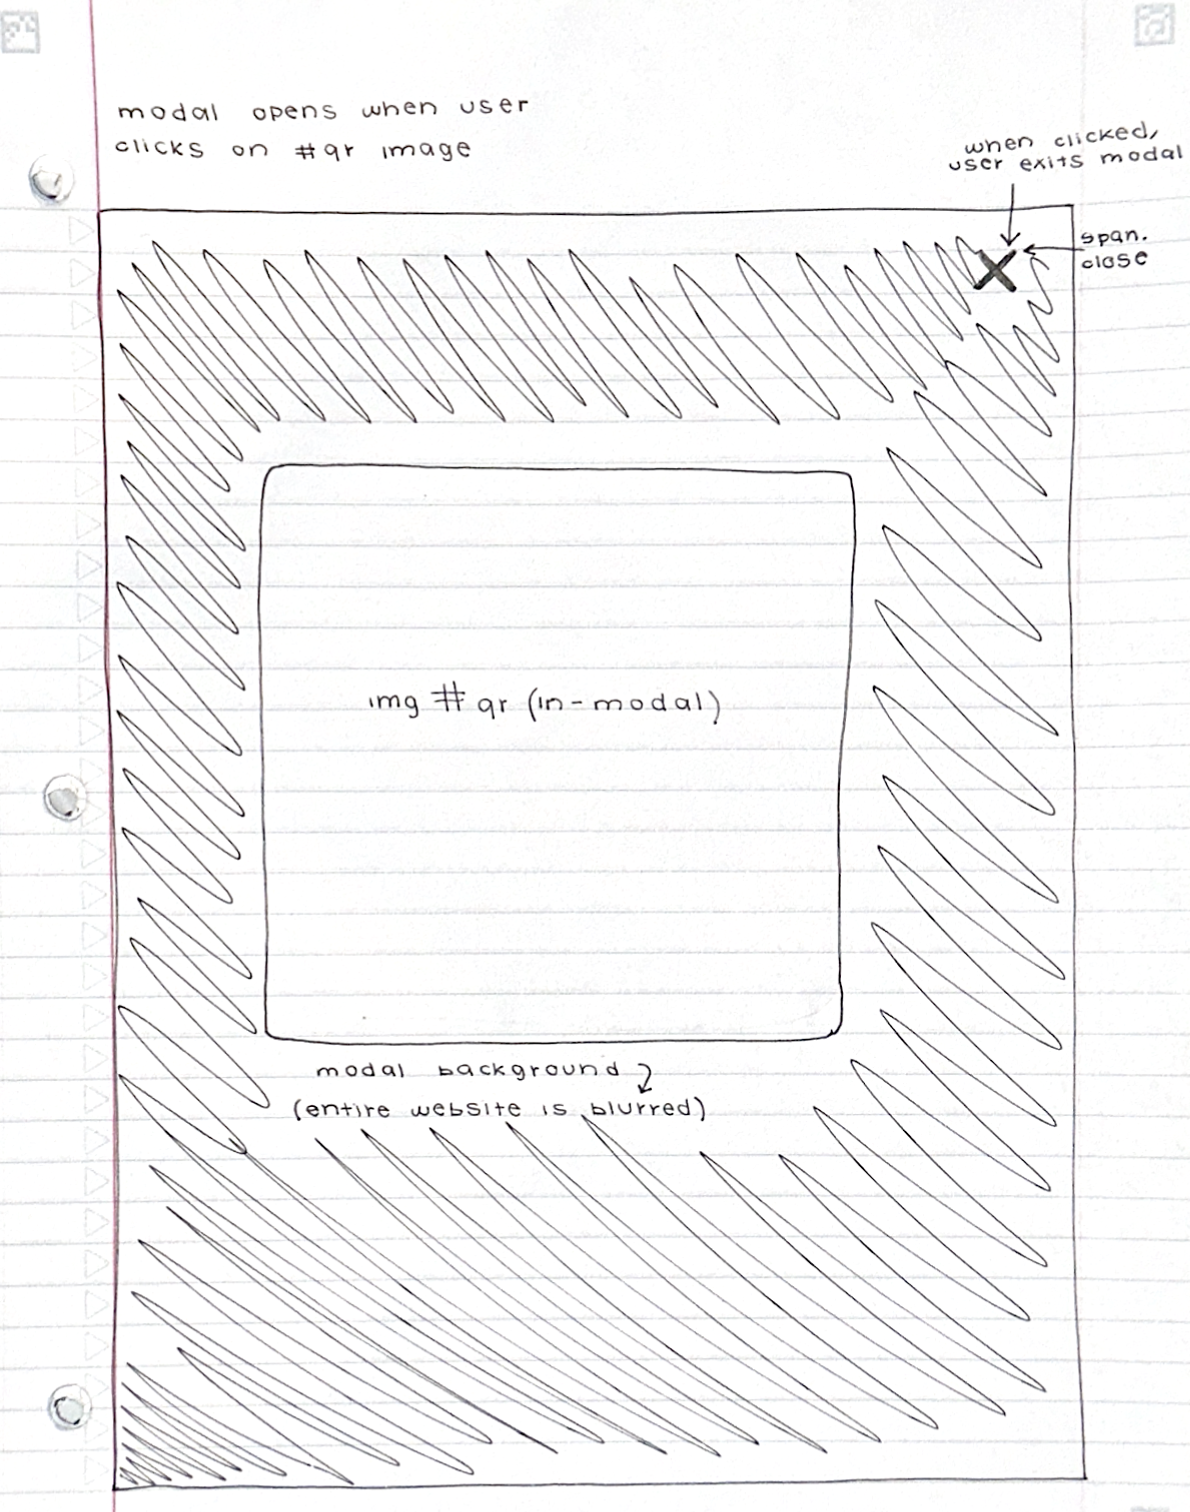 modal opens when user
clicks on #qr image
when clicked,
user exits modal
span.
close
img #qr (in-modal)
modal background
(entire website is blurred)